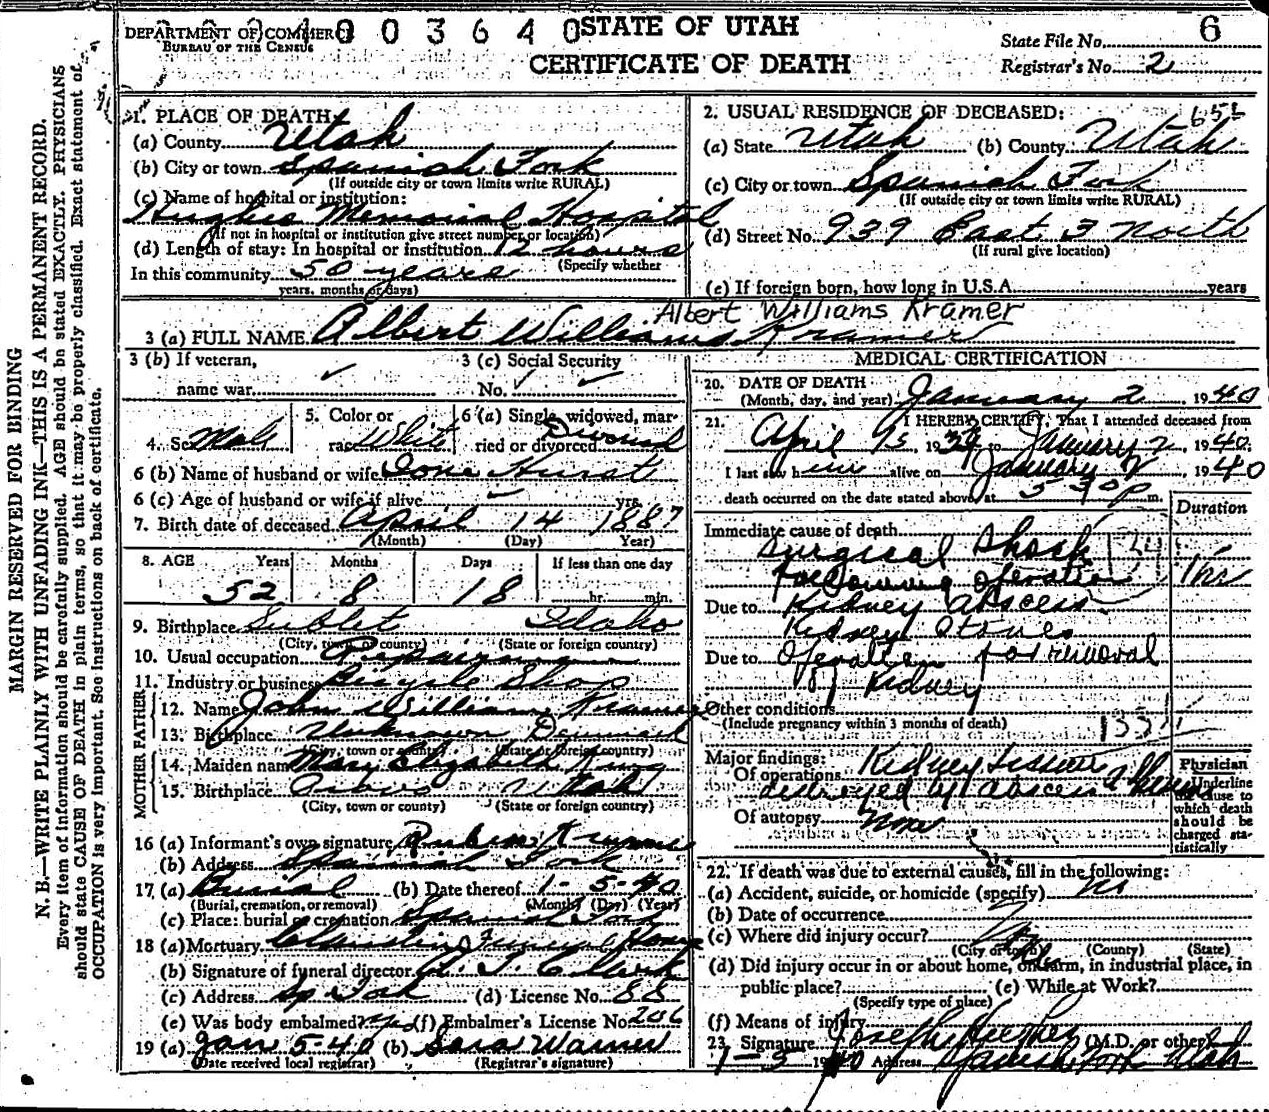 DEPARTMENT OF COMMERCE
BUREAU OF THE CENSUS
0 0 3 6 4 0
STATE OF UTAH
CERTIFICATE OF DEATH
6
State File No.
Registrar's No. 2
MARGIN RESERVED FOR BINDING
N. B.—WRITE PLAINLY WITH UNFADING INK—THIS IS A PERMANENT RECORD.
Every item of information should be carefully supplied. AGE should be stated EXACTLY. PHYSICIANS
should state CAUSE OF DEATH in plain terms, so that it may be properly classified. Exact statement of
OCCUPATION is very important. See instructions on back of certificate.
1. PLACE OF DEATH:
(a) County Utah
(b) City or town Spanish Fork
(If outside city or town limits write RURAL)
(c) Name of hospital or institution:
Hughes Memorial Hospital
(If not in hospital or institution give street number or location)
(d) Length of stay: In hospital or institution 12 hours
(Specify whether
In this community 50 years
years, months or days)
2. USUAL RESIDENCE OF DECEASED:
(a) State Utah (b) County Utah
(c) City or town Spanish Fork
(If outside city or town limits write RURAL)
(d) Street No. 939 East 3 North
(If rural give location)
(e) If foreign born, how long in U.S.A. years
Albert Williams Kramer
3 (a) FULL NAME Albert Williams Kramer
3 (b) If veteran,
name war
3 (c) Social Security
No.
4. Sex Male
5. Color or
race White
6 (a) Single, widowed, mar-
ried or divorced Divorced
6 (b) Name of husband or wife Ione Hurst
6 (c) Age of husband or wife if alive yrs.
7. Birth date of deceased April 14 1887
(Month) (Day) (Year)
8. AGE Years Months Days If less than one day
52 8 18 hr. min.
9. Birthplace Sublet Idaho
(City, town or county) (State or foreign country)
10. Usual occupation Repairman
11. Industry or business Bicycle Shop
FATHER
12. Name John William Kramer
13. Birthplace Unknown Denmark
(City, town or county) (State or foreign country)
MOTHER
14. Maiden name Mary Elizabeth King
15. Birthplace Utah
(City, town or county) (State or foreign country)
16 (a) Informant's own signature
(b) Address Spanish Fork
17 (a) Burial (b) Date thereof 1-5-40
(Burial, cremation, or removal) (Month) (Day) (Year)
(c) Place: burial or cremation Spanish Fork
18 (a) Mortuary Claudin Funeral Home
(b) Signature of funeral director
(c) Address Sp Fork (d) License No. 88
(e) Was body embalmed? Yes (f) Embalmer's License No. 206
19 (a) Jan 5-40 (b) Sara Warner
(Date received local registrar) (Registrar's signature)
MEDICAL CERTIFICATION
20. DATE OF DEATH
(Month, day, and year) January 2, 1940
21. I HEREBY CERTIFY, That I attended deceased from
April 1939 to January 2, 1940
I last saw him alive on January 2 1940
death occurred on the date stated above, at 5 30 p m.
Duration
Immediate cause of death
Surgical Shock
following operation 1 hr
Due to Kidney Abscess
Kidney Stones
Due to Operation for removal
of Kidney
Other conditions
(Include pregnancy within 3 months of death)
Major findings:
Of operations Kidney tissue
destroyed by abscess
Of autopsy None
Physician
Underline
the cause to
which death
should be
charged sta-
tistically
22. If death was due to external causes, fill in the following:
(a) Accident, suicide, or homicide (specify) no
(b) Date of occurrence
(c) Where did injury occur?
(City or town) (County) (State)
(d) Did injury occur in or about home, on farm, in industrial place, in
public place? (e) While at Work?
(Specify type of place)
(f) Means of injury
23. Signature Joseph Hughes (M.D. or other)
1-5 1940 Address Spanish Fork Utah